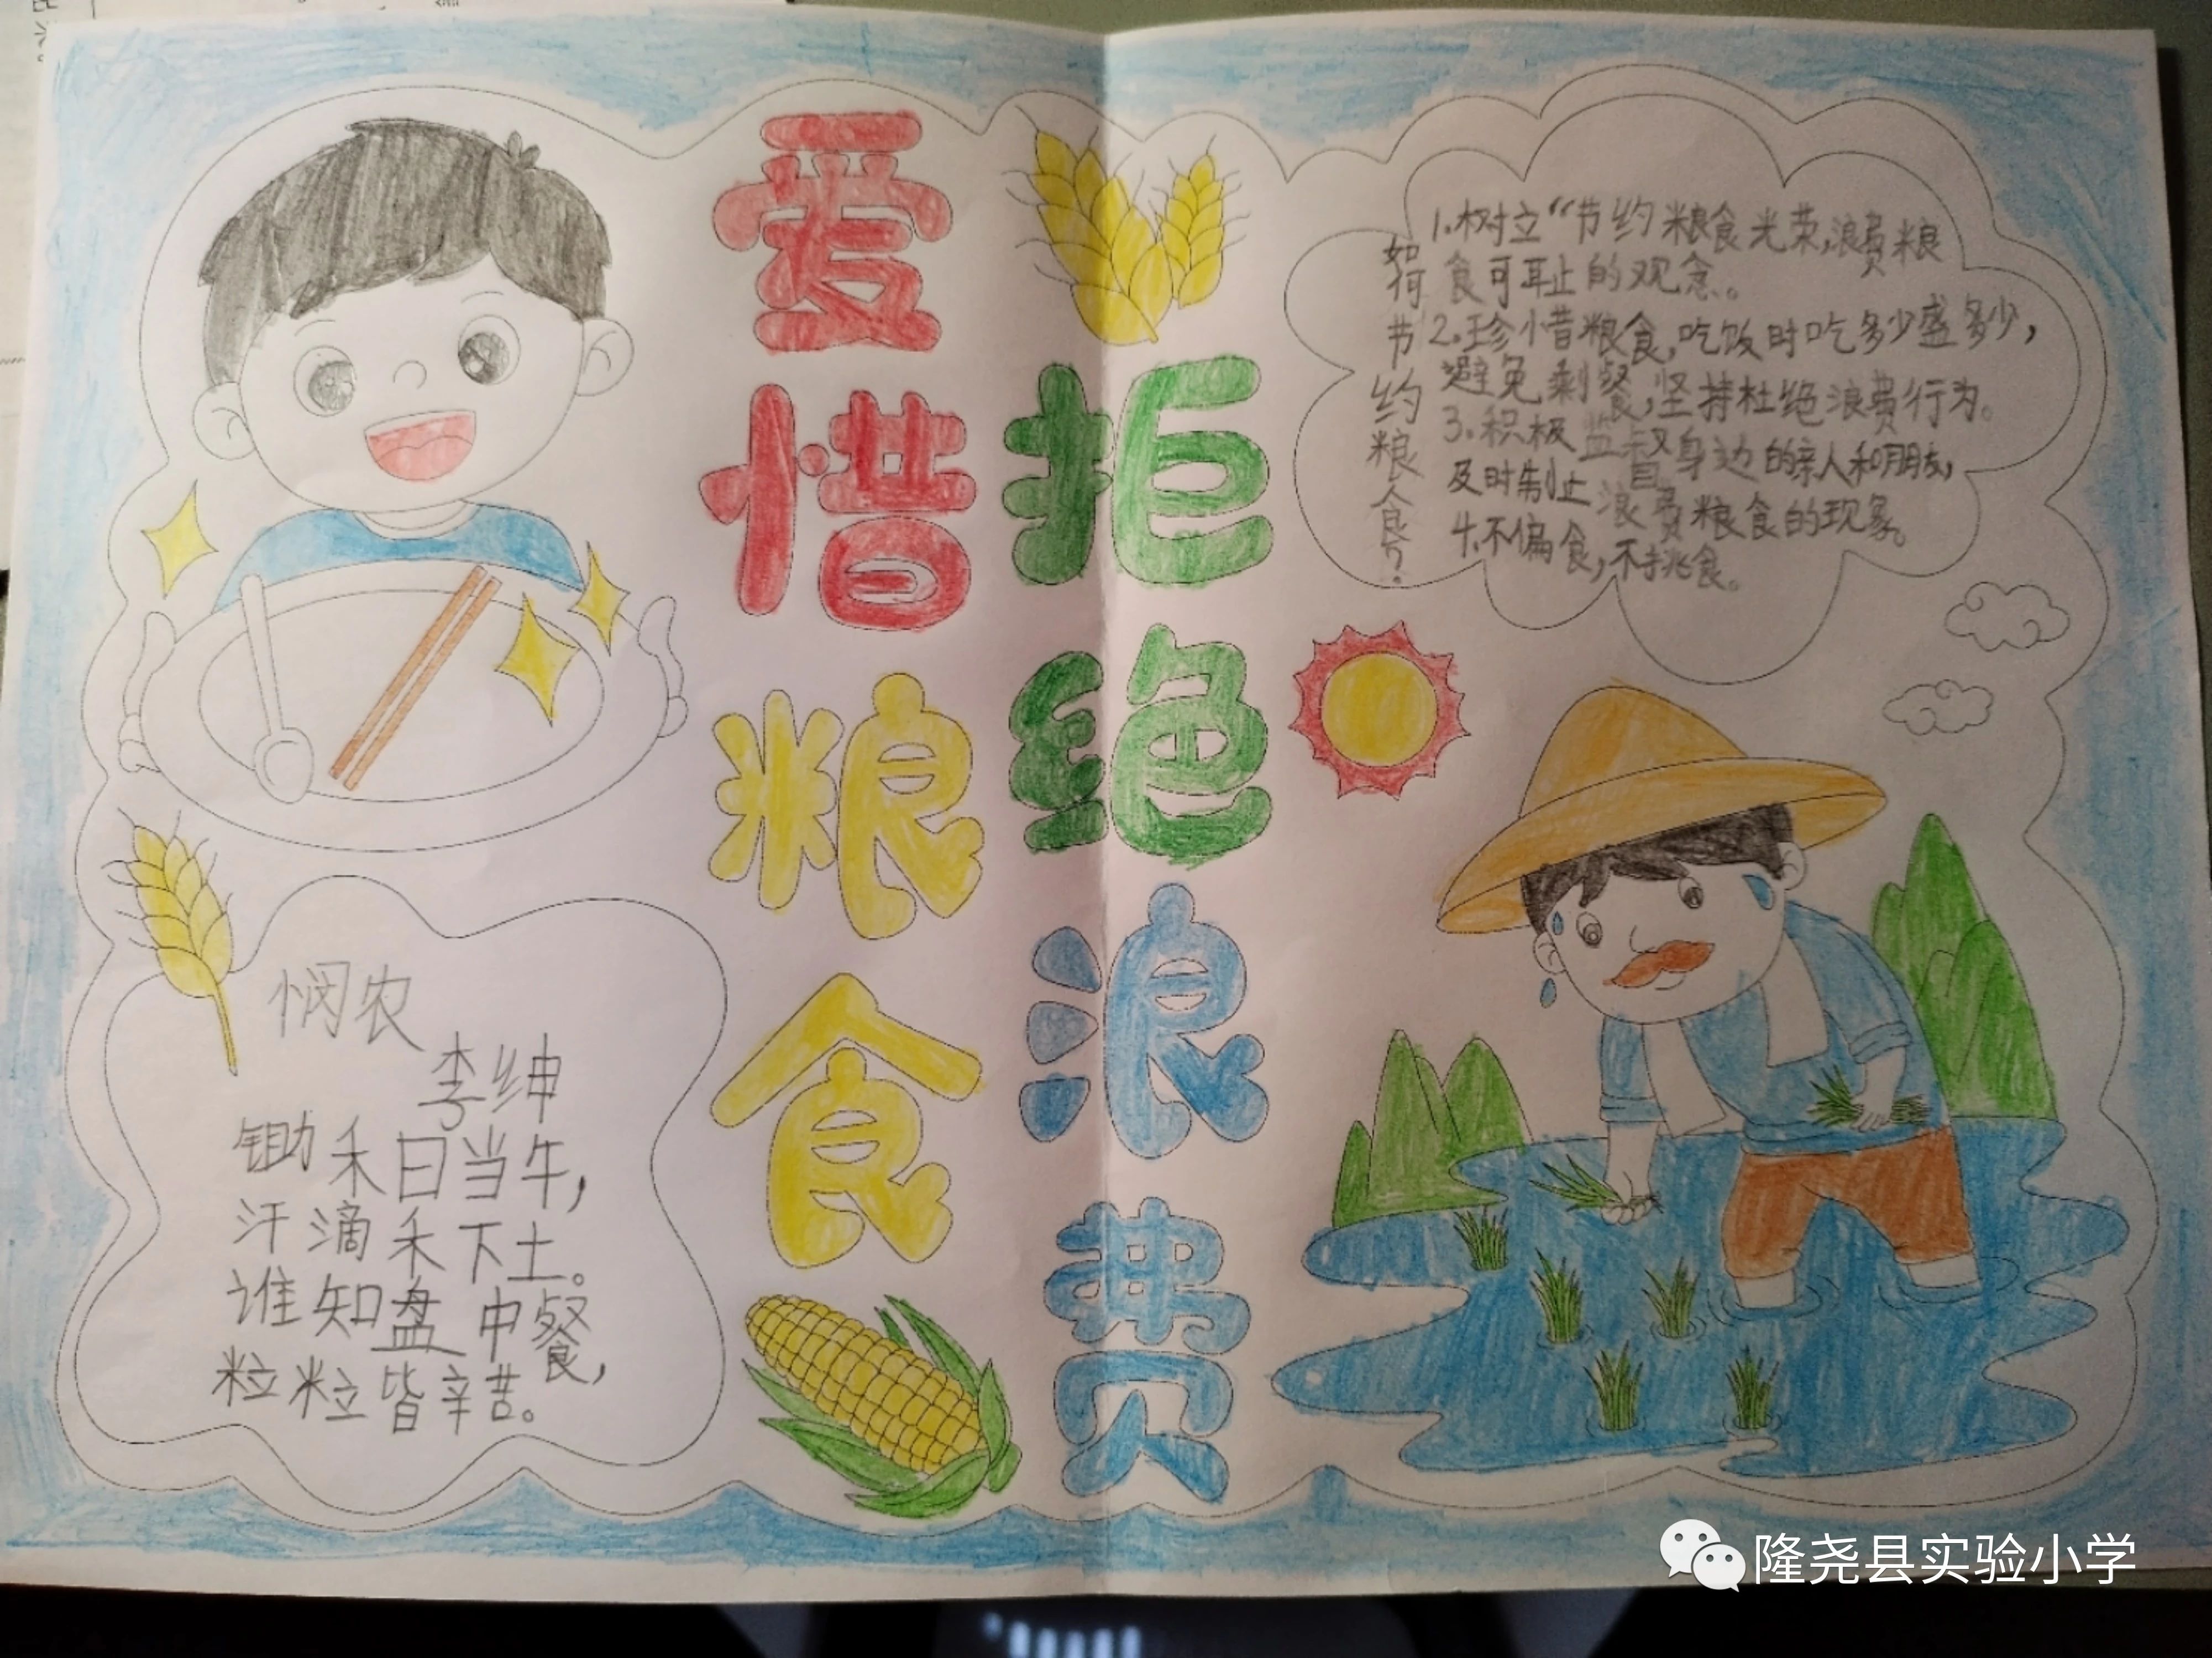 爱惜粮食
拒绝浪费
如何节约粮食?
1.树立“节约粮食光荣,浪费粮
食可耻的观念。
2.珍惜粮食,吃饭时吃多少盛多少,
避免剩餐,坚持杜绝浪费行为。
3.积极监督身边的亲人和朋友,
及时制止浪费粮食的现象。
4.不偏食,不挑食。
悯农
李绅
锄禾日当午,
汗滴禾下土。
谁知盘中餐,
粒粒皆辛苦。
隆尧县实验小学